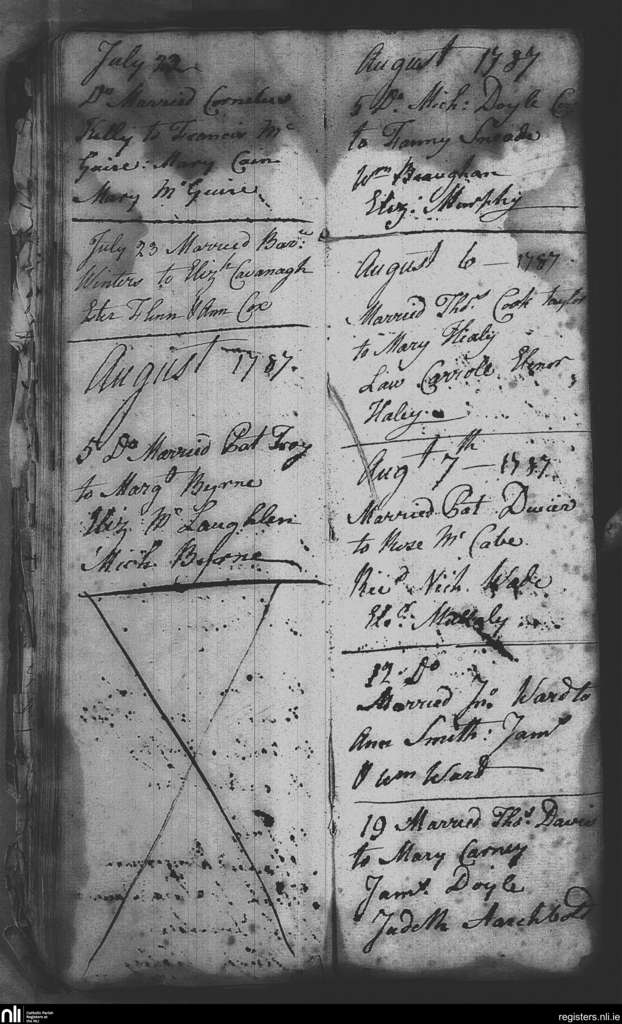 July 22
Do Married Cornelius
Kelly to Francis Mc
Guire: Mary Cain
Mary McGuire
July 23 Married Bar:
Winters to Elizth Cavanagh
Flinn & Ann Cox
August 1787.
5 Do Married Pat Troy
to Margt Byrne
Eliz Mc Laughlen
Mich Byrne
August 1787
5 Do Mich: Doyle
to Fanny
Wm
Eliz: Murphy
August 6 - 1787
Married Thos Cook taylor
to Mary Healy
Law Carrole Elenor
Haley
Augt 7th - 1787.
Married Pat Dwier
to Rose Mc Cabe.
Nich Wade
12 Do
Married Jno Ward to
Ann Smith: Jams
& Wm Ward
19 Married Thos
to Mary Carney
Jams Doyle
Judeth Archbold
nli
Catholic Parish
Registers at
the NLI
registers.nli.ie